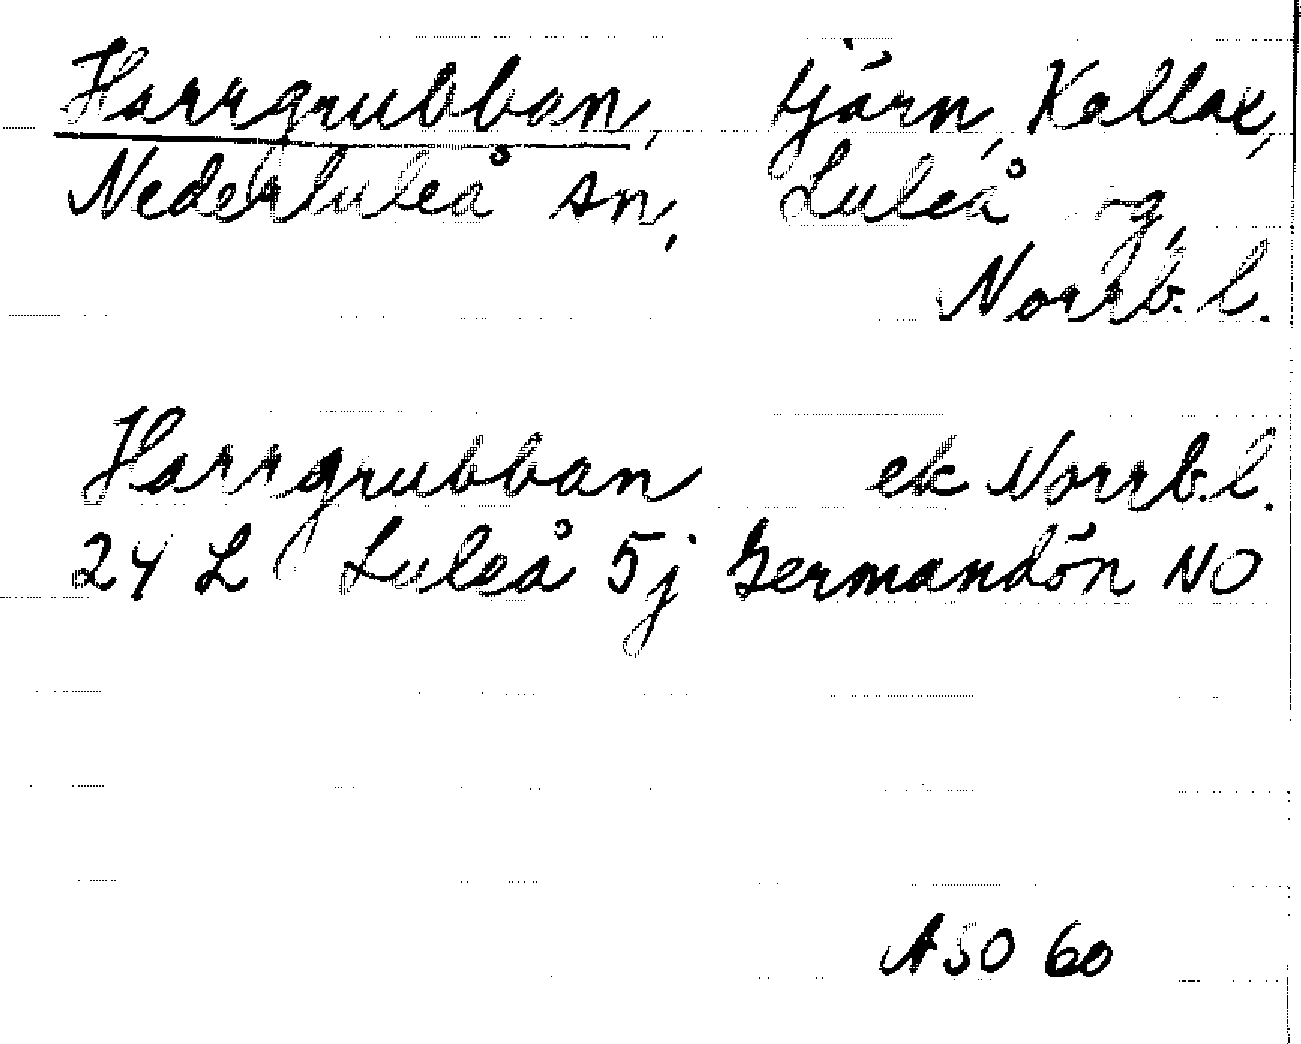 Harrgrubban, tjärn, Kallax,
Nederluleå sn, Luleå og,
Norrb. l.
Harrgrubban ek Norrb. l.
24 L Luleå 5j Germandön NO
ASO 60